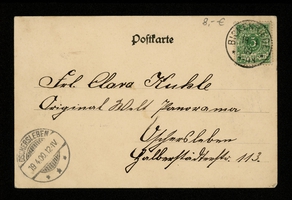 8.-€
Postkarte
Frl. Clara Kuhle
Original Welt Panorama
Oschersleben
Halberstädterstr. 113.
OSCHERSLEBEN
19.4.00.12-1V
5